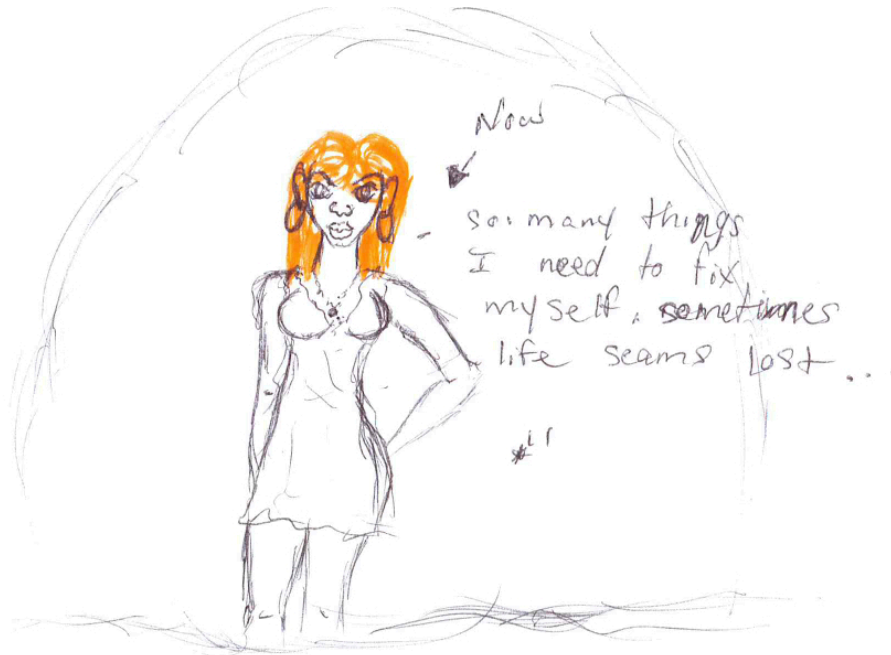 Now
so many things
I need to fix
myself. sometimes
life seams lost...